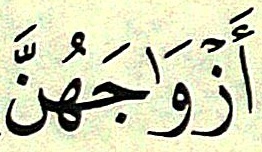 أَزۡوَٰجَهُنَّ